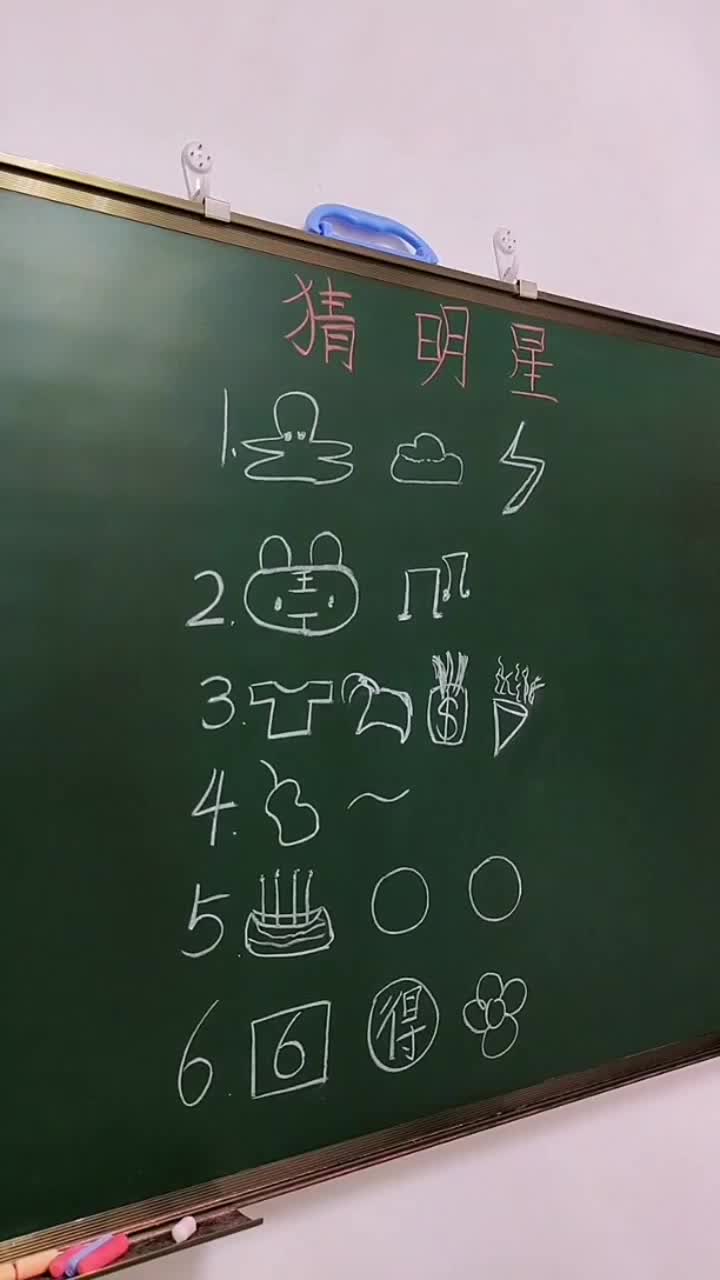 猜明星
1.
2. 王
3. $
4.
5.
6. 6 得